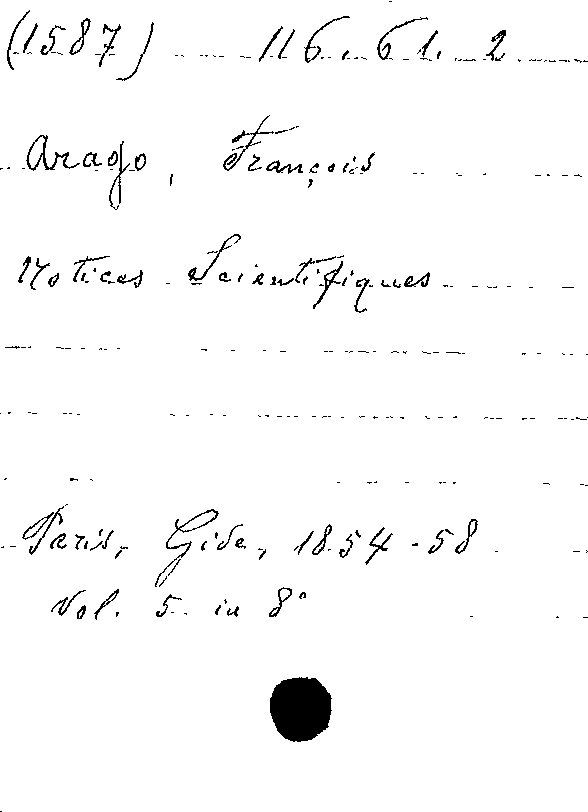 (1587) 116. 61. 2
Arago, François
Notices Scientifiques
Paris, Gide, 1854-58
Vol. 5 in 8°